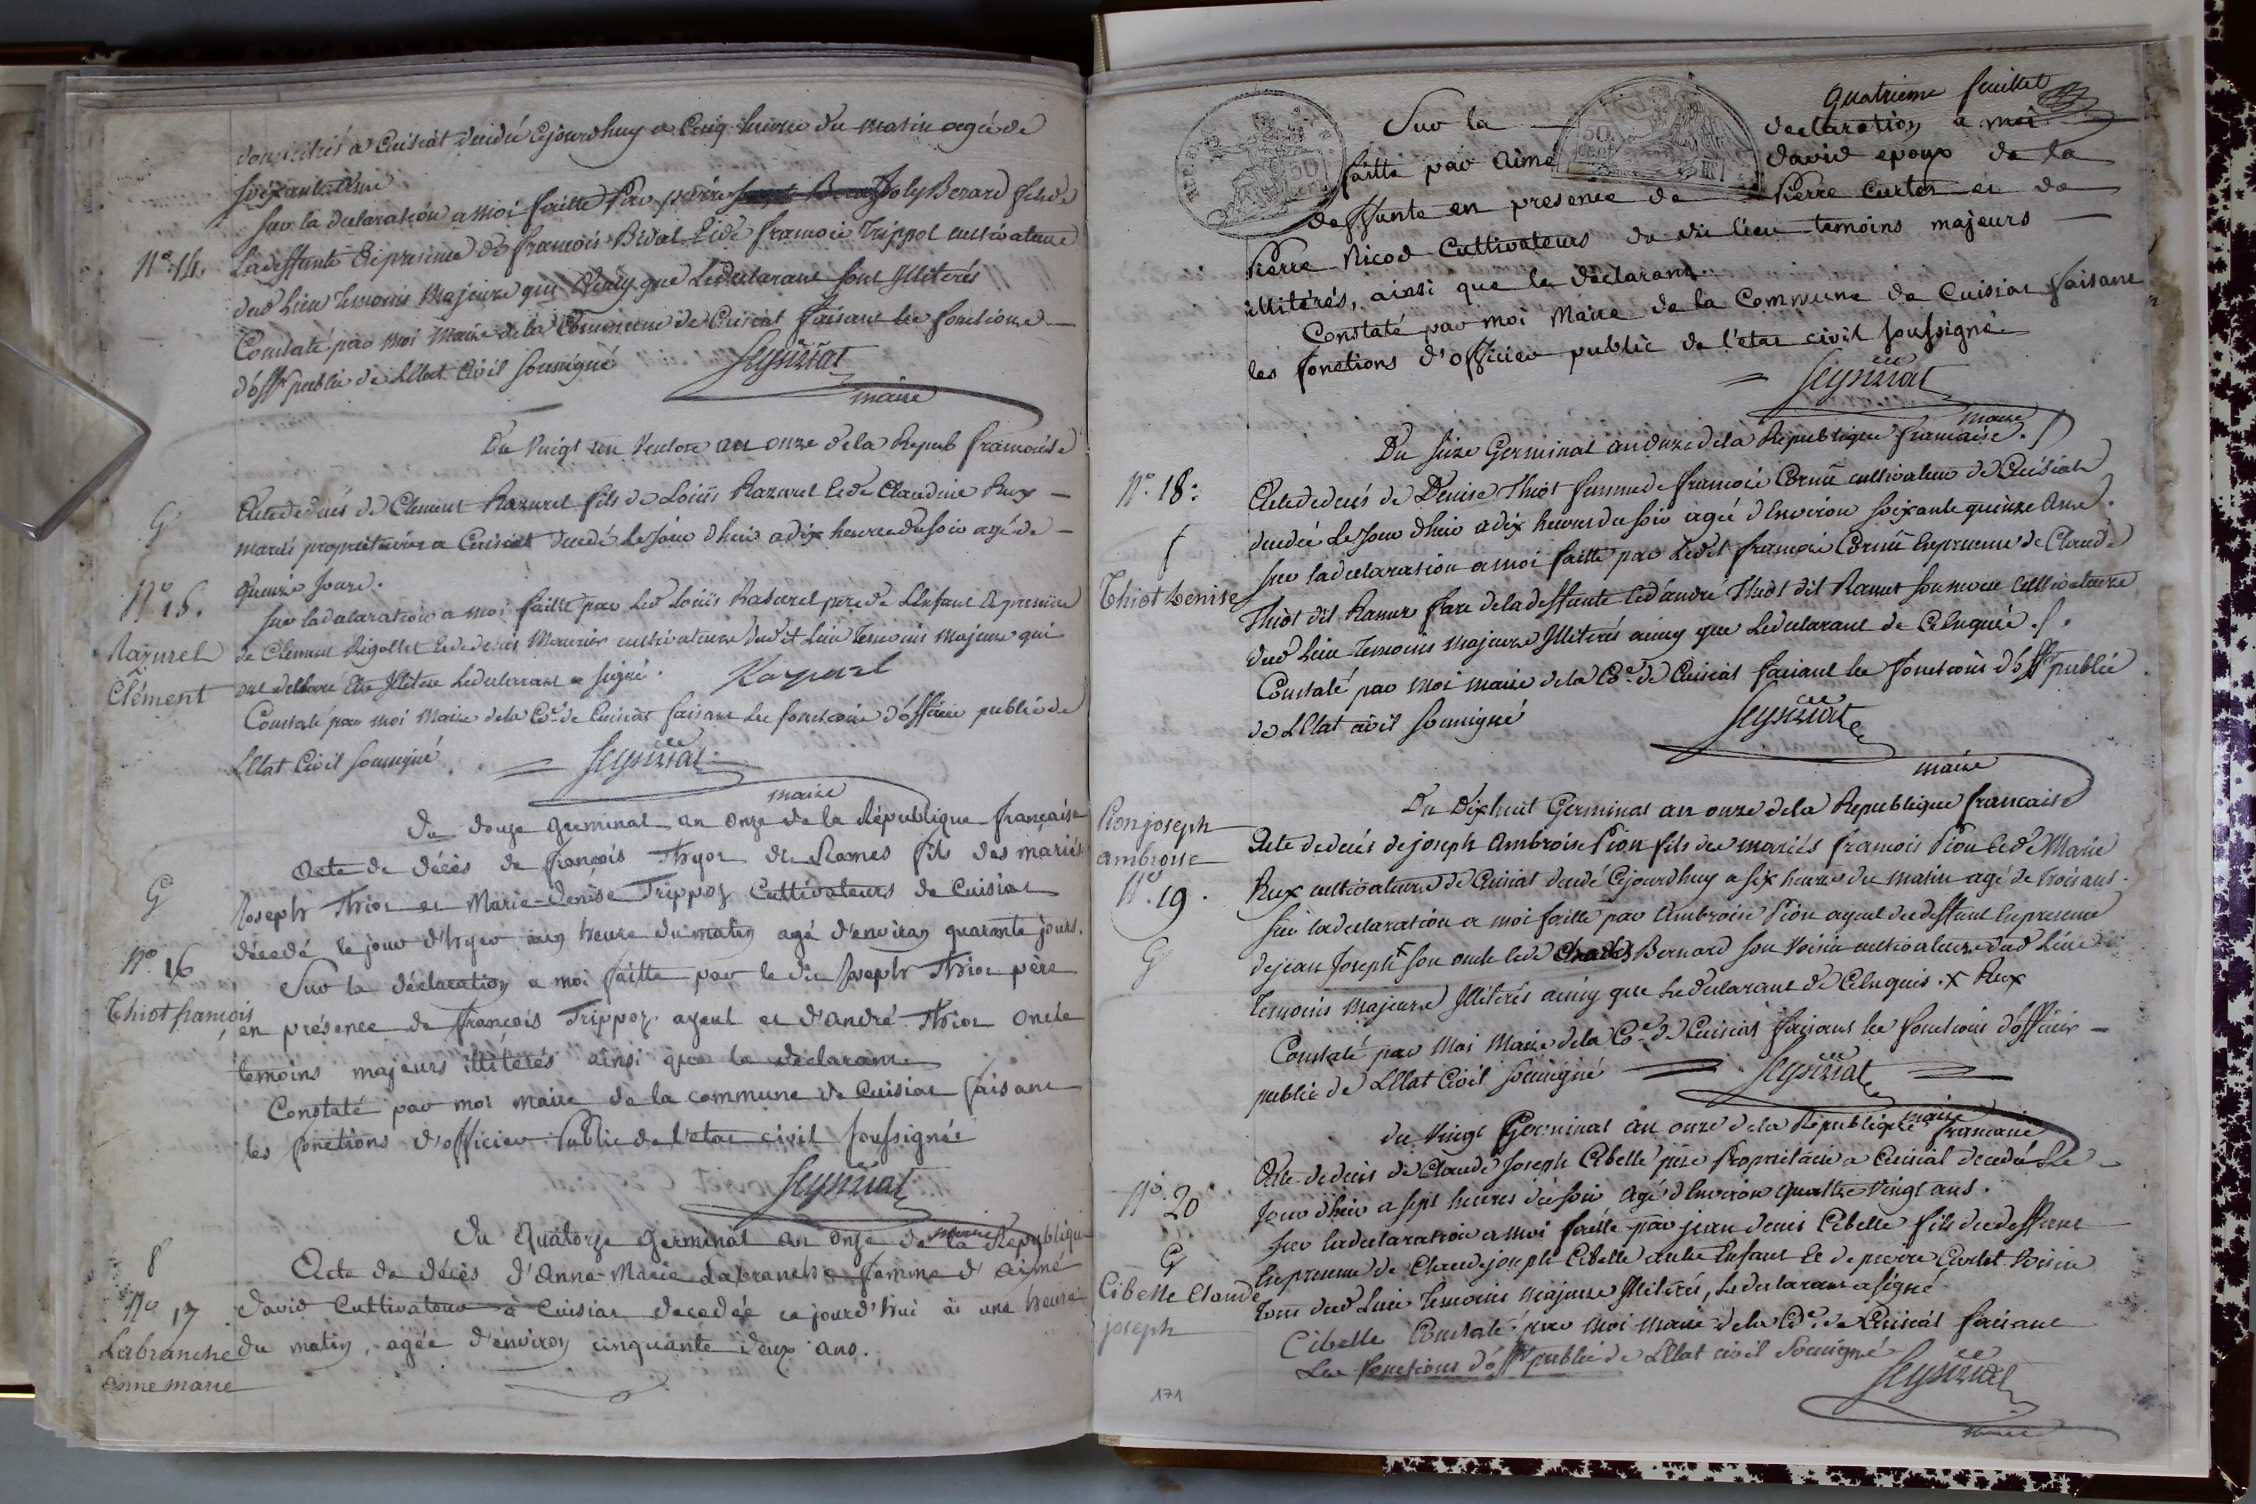 à Cuisiat decedée cejourdhuy a Cinq heures du matin agée de
soixante
Sur la declaration a moi faitte par pierre Joly Berard fils de
N° 14.
La deffunte En presence de francois Bidal Et de francois Trippoz cultivateurs
dud Lieu temoins Majeurs qui ainsy que Le declarant sont Illiterés
Constaté par moi Maire de la Commune de Cuisiat faisant les fonctions
d'offr public de LEtat Civil soussigné
Seyssiat
maire
Du Vingt un Ventose an onze de la Repub francoise
G
Acte de decés de Clement Razurel fils de Loüis Razurel Et de Claudine Rux
mariés proprietaires a Cuisiat decedé Le Jour dhier a dix heures du soir agé de
N° 15.
quinze Jours.
Sur la declaration a moi faitte par Led Loüis Razurel pere de LEnfant En presence
Razurel
de Clement Rigollet Et de denis Mercier cultivateurs dudit Lieu Temoins Majeurs qui
Clément
ont declaré Etre Illiteré Le declarant a signé. Razurel
Constaté par moi Maire de la Cne de Cuisiat faisant Les fonctions d'officier public de
LEtat Civil soussigné
Seyssiat
maire
Du douze germinal an onze de la République française
Acte de décès de françois Thyot de Rames fils des mariés
G
Joseph Thiot et Marie-Denise Trippoz Cultivateurs de Cuisiat
décedé le jour d'hyer heure du matin agé d'environ quarante jours.
N° 16
Sur la déclaration a moi faitte par le dit Joseph Thiot père
Thiot francois
en présence de françois Trippoz ayeul et d'andré Thiot oncle
temoins majeurs illitérés ainsi que le declarant
Constaté par moi maire de la commune de Cuisiat faisant
les fonctions d'officier Public de l'etat civil soussigné
Seyssiat
maire
Du Quatorze germinal an onze de la République
8
Acte de décès d'Anne-Marie Labranche femme d'aimé
N° 17
david Cultivateur à Cuisiat decedée ce jourd'hui à une heure
Labranche
du matin, agée d'environ cinquante deux ans.
anne marie
quatrieme feuillet
Sur la declaration a moi
faitte par Aimé david epoux de la
deffunte en presence de Pierre Curtet et de
Pierre Nicod Cultivateurs du dit lieu temoins majeurs
illitérés, ainsi que le déclarant.
Constaté par moi Maire de la Commune de Cuisiat faisant
les fonctions d'officier public de l'etat civil soussigné
Seyssiat
maire
Du seize Germinal an onze de la Republique francaise.
N° 18.
Acte de decés de Denise Thiot femme de francois Cornu cultivateur de Cuisiat
decedée Le Jour dhier a dix heures du soir agée d'Environ soixante quinze Ans.
Sur la declaration a moi faitte par Ledit francois Cornu En presence de Claude
Thiot Denise
Thiot dit Ramur frere de la deffunte Et d'andré Thiot dit Ramut son neveu cultivateurs
dud Lieu temoins majeurs Illiterés ainsy que Le declarant de Ce Enquis.
Constaté par moi maire de la Cne de Cuisiat faisant les fonctions d'offr public
de LEtat civil soussigné
Seyssiat
maire
Du Dixhuit Germinal an onze de la Republique francaise
Pion joseph
ambroise
Acte de decés de joseph Ambroise Pion fils des mariés francois Pion Et de Marie
N° 19.
Rux cultivateurs de Cuisiat decedé Cejourdhuy a six heures du matin agé de trois ans.
Sur la declaration a moi faitte par Ambroise Pion ayeul du deffunt En presence
G
de jean Joseph x son oncle Et de Bernard son voisin cultivateurs dud Lieu
Temoins Majeurs Illiterés ainsy que Le declarant de Ce Enquis. x Rux
Constaté par Moi Maire de la Cne de Cuisiat faisant les fonctions d'officier
public de LEtat Civil soussigné
Seyssiat
maire
du Vingt Germinal an onze de la Republique francaise
Acte de decés de Claude Joseph Cibelle père Proprietaire a Cuisiat decedé Le
N° 20
Jour dhier a sept heures du soir agé d'Environ quattre vingt ans.
Sur la declaration a moi faitte par jean denis Cibelle fils du deffunt
G
En presence de Claude joseph Cibelle autre Enfant Et de pierre Curtet voisin
Cibelle Claude
joseph
tous dud Lieu Temoins majeurs Illiterés, Le declarant a signé
Cibelle Constaté par moi maire de la Cne de Cuisiat faisant
Les fonctions d'offr public de LEtat civil soussigné
Seyssiat
maire
171